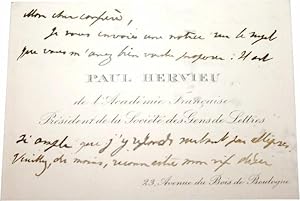 Mon cher confrère,
Je vous envoie une notice sur le sujet
que vous m'avez bien voulu proposer : il est
PAUL HERVIEU
de l'Académie Française
Président de la Société des Gens de Lettres
si ample que j'y réponds surtout par ellipses,
Veuillez, du moins, reconnaître mon vif désir
23, Avenue du Bois de Boulogne